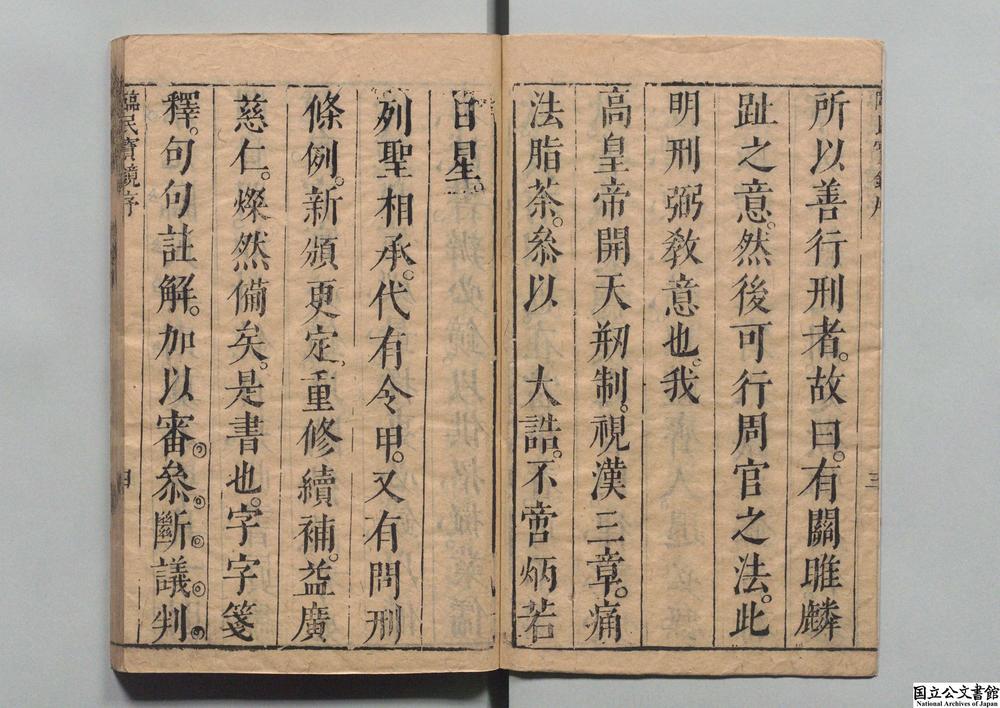 所以善行刑者。故曰。有關雎麟
趾之意。然後可行周官之法。此
明刑弼敎意也。我
高皇帝開天剏制。視漢三章。痛
法脂茶。叅以　大誥。不啻炳若
日星。
列聖相承。代有令甲。又有問刑
條例。新頒更定、重修續補。益廣
慈仁。燦然備矣。是書也。字字箋
釋。句句註解。加以審。叅。斷。議。判。
臨民寶鏡序
国立公文書館
National Archives of Japan